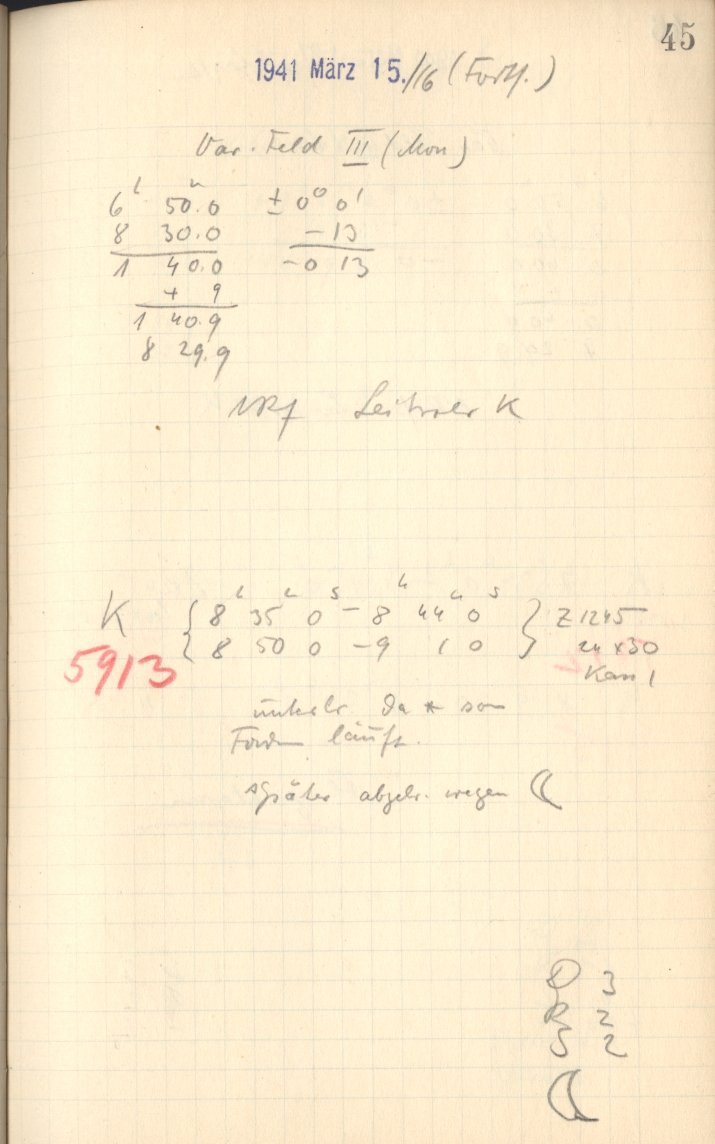 45
1941 März 15./16 (Forts.)
Var. Feld III (Mon)
6h 50.0m ± 0° 0'
8 30.0 - 13
1 40.0 - 0 13
+ 9
1 40.9
8 29.9
Leitstern K
K { 8h 35m 0s - 8h 44m 0s } Z 1245
5913 { 8 50 0 - 9 1 0 } 24 x 30
Kass 1
unterbr. da * vom
Faden läuft.
später abgebr. wegen ☾
D 3
R 2
S 2
☾